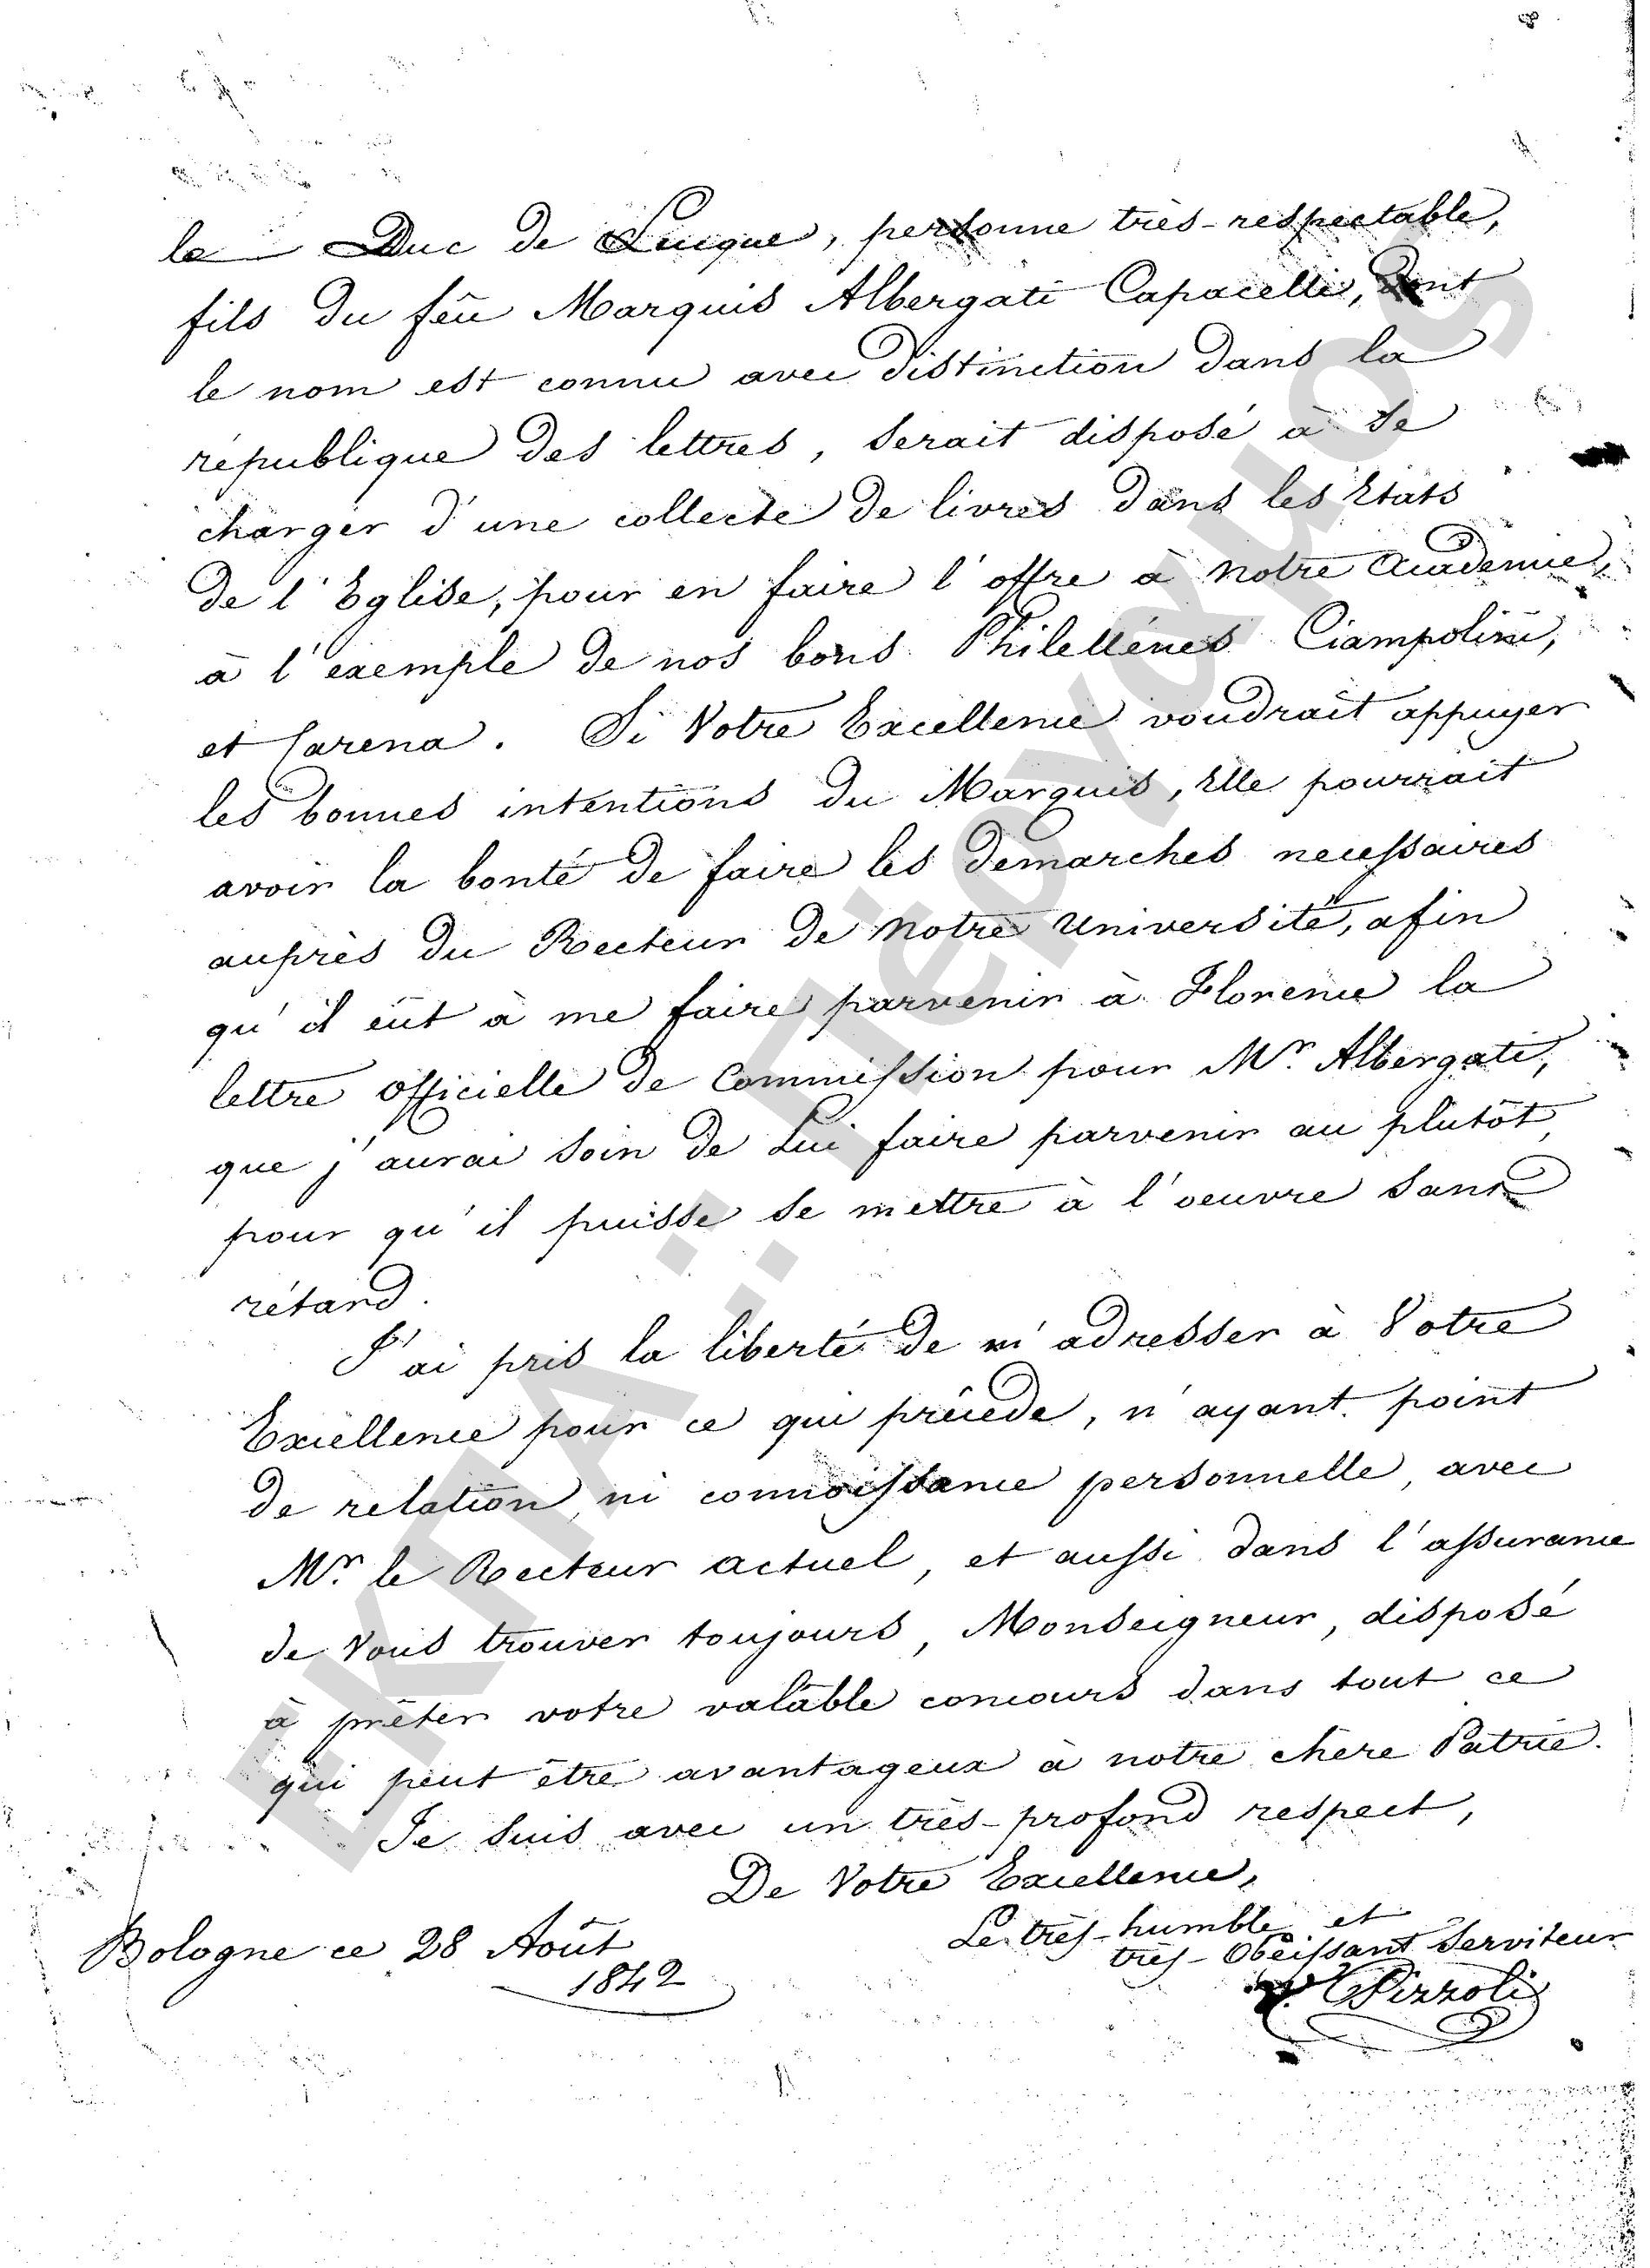 le Duc de Lucque, personne très-respectable,
fils du feu Marquis Albergati Capacelli, dont
le nom est connu avec distinction dans la
république des lettres, serait disposé à se
charger d'une collecte de livres dans les Etats
de l'Eglise, pour en faire l'offre à notre Académie,
à l'exemple de nos bons Philellènes Ciampolini,
et Carena. Si Votre Excellence voudrait appuyer
les bonnes intentions du Marquis, Elle pourrait
avoir la bonté de faire les démarches necessaires
auprès du Recteur de notre Université, afin
qu'il eût à me faire parvenir à Florence la
lettre officielle de Commission pour Mr. Albergati,
que j'aurai soin de Lui faire parvenir au plutôt,
pour qu'il puisse se mettre à l'oeuvre sans
rétard.
J'ai pris la liberté de m'adresser à Votre
Excellence pour ce qui précede, n'ayant point
de relation, ni connoissance personnelle, avec
Mr. le Recteur actuel, et aussi dans l'assurance
de Vous trouver toujours, Monseigneur, disposé
à prêter votre valable concours dans tout ce
qui peut être avantageux à notre chère Patrie.
Je suis avec un très-profond respect,
De Votre Excellence,
Le très-humble et
très-Obéissant Serviteur
Pizzoli
Bologne ce 28 Août
1842
ΕΚΠΑ: Πέργαμος